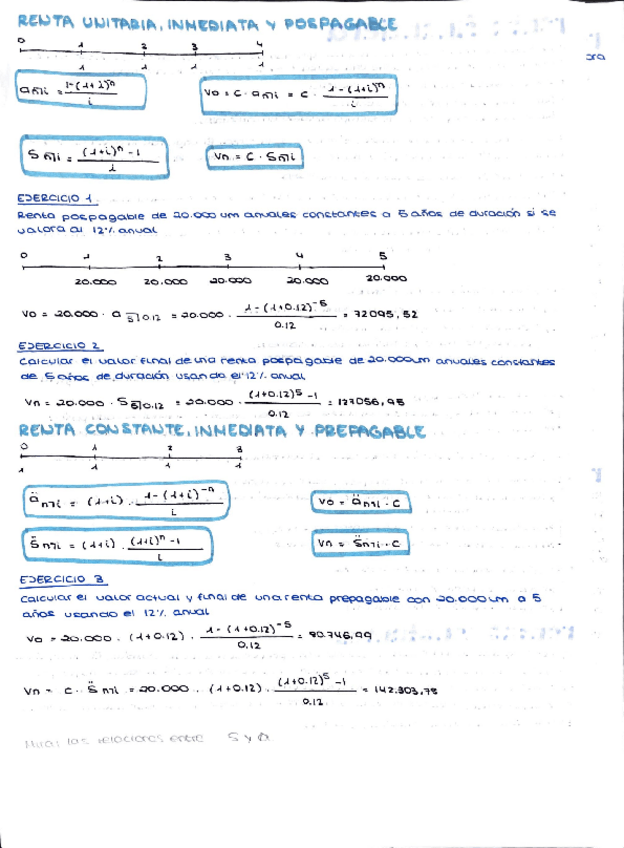 RENTA UNITARIA, INMEDIATA Y POSPAGABLE
0 1 2 3 4
1 1 1 1
an¬i = 1-(1+i)^n / i
V0 = C · an¬i = C · 1-(1+i)^n / i
Sn¬i = (1+i)^n - 1 / i
Vn = C · Sn¬i
EJERCICIO 1
Renta pospagable de 20.000 um anuales constantes a 5 años de duración si se
valora al 12% anual
0 1 2 3 4 5
20.000 20.000 20.000 20.000 20.000
V0 = 20.000 · a5¬0.12 = 20.000 · 1-(1+0.12)^-5 / 0.12 = 72095,52
EJERCICIO 2
Calcular el valor final de una renta pospagable de 20.000um anuales constantes
de 5 años de duración usando el 12% anual
Vn = 20.000 · S5¬0.12 = 20.000 · (1+0.12)^5 - 1 / 0.12 = 127056,95
RENTA CONSTANTE, INMEDIATA Y PREPAGABLE
0 1 2 3
1 1 1 1
än¬i = (1+i) · 1-(1+i)^-n / i
V0 = än¬i · C
S̈n¬i = (1+i) · (1+i)^n - 1 / i
Vn = S̈n¬i · C
EJERCICIO 3
Calcular el valor actual y final de una renta prepagable con 20.000 um a 5
años usando el 12% anual
V0 = 20.000 · (1+0.12) · 1-(1+0.12)^-5 / 0.12 = 80.746,99
Vn = C · S̈n¬i = 20.000 · (1+0.12) · (1+0.12)^5 - 1 / 0.12 = 142.303,78
Mirar las relaciones entre S y a